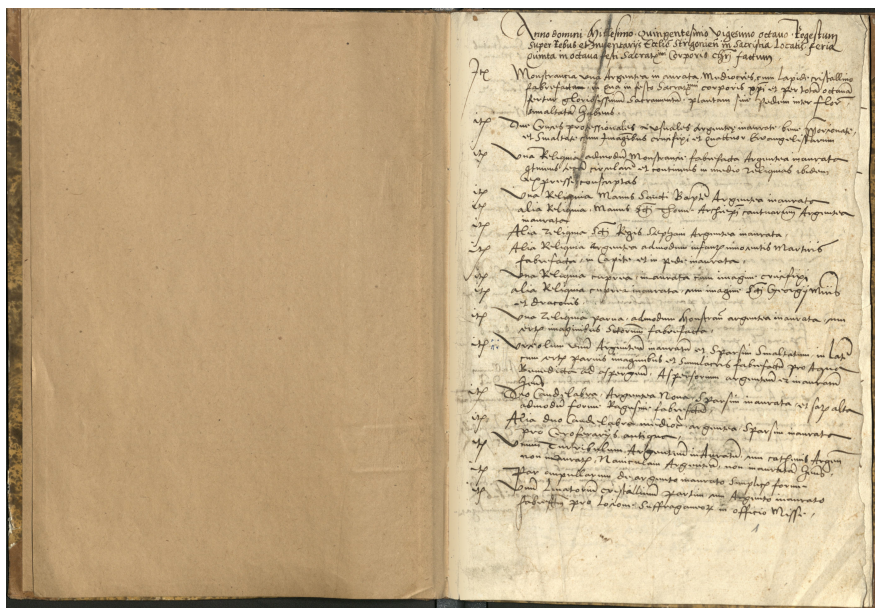 Anno domini Millesimo Quingentesimo vigesimo octavo Regestum
super Rebus et Inventarys Ecclie Strigonien in Sacristia Locatis feria
quinta in octava festi Sacrati Corporis Chri factum
Itē Monstrancia una Argentea in aurata Mediocris cum Lapide cristallino
fabrefactam in qua in festo Sacrati corporis xpi et per totā octavā
fertur gloriosissimū Sacramentū plantam sive pedem inter flor
smaltatā habens
itē Due Cruces processionales Argentee inaurate
et Smaltate cum Imaginibus crucifixi et quattuor Evangelistarum
itē Una Reliquia admodum Monstrancie fabrefacta Argentea inaurata
circulare et continens in medio reliquias ibidem
expresse conscriptas
itē Una Reliquia Manus Sancti Bapte Argentea inaurata
itē alia Reliquia Manus Sti Thome Archiepi cantuariens Argentea
inaurata
itē Alia reliquia Sti Regis Stephani Argentea inaurata
Itē Alia Reliquia Argentea admodum infantis innocentis Martiris
fabrefacta in Capite et in pede inaurata
itē Una Reliquia cuprea inaurata cum imagine crucifixi
itē alia Reliquia cuprea inaurata cum imagine Sti Georgy Militis
et draconis
itē Una reliquia parva admodum Monstran argentea inaurata cum
certis imaginibus Sctorum fabrefacta
itē Urceolum unū Argenteū inauratū et Sparsim Smaltatum in Lat
cum certis parvis imaginibus et fabrefactū pro Aqua
Benedicta ad aspergend Aspersorium argenteū et inauratū
habens
itē Duo Candelabra Argentea Nova Sparsim inaurata et satis alta
admodū forme Rugosime fabrefacta
itē Alia duo Candelabra mediocr argentea Sparsim inaurata
pro Ceroferarys antiqua
itē Unum Turribulum Argenteum inauratū cum cathenis Argen
non inauratis Naviculam Argenteā non inauratā habens
itē Par ampullarum de argento inaurato Simplicis forme
itē Unum cristallinū partim cum Argento inaurato
fabrefactū pro Locione Suffraganeor in officio Misse
1